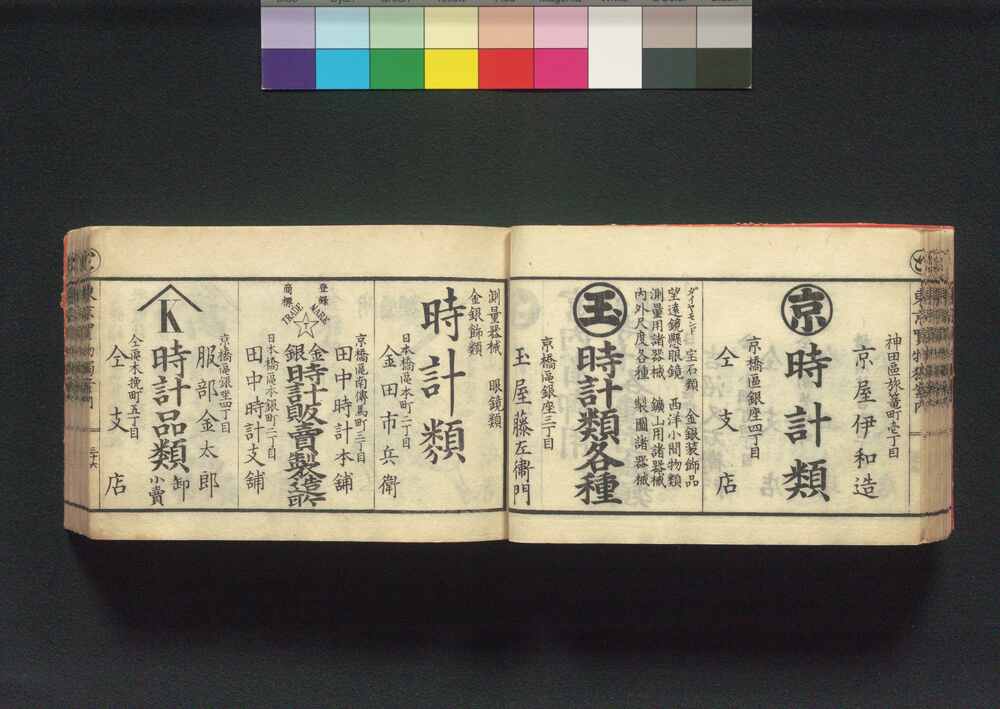 神田區旅篭町壱丁目
京屋伊和造
京
時計類
京橋區銀座四丁目
仝支店
ダイヤモンド 宝石類 金銀装飾品
望遠鏡懸眼鏡 西洋小間物類
測量用諸器械 鑛山用諸器械
内外尺度各種 製圖諸器械
玉
時計類各種
京橋區銀座三丁目
玉屋藤左衞門
測量器械 眼鏡類
金銀飾類
時計類
日本橋區本町二丁目
金田市兵衛
京橋區南傳馬町三丁目
田中時計本舗
登録
商標
TRADE MARK
T
金銀時計販賣製造所
日本橋區本銀町二丁目
田中時計支舗
京橋區銀座四丁目
服部金太郎
K
時計品類 卸小賣
仝區木挽町五丁目
仝支店